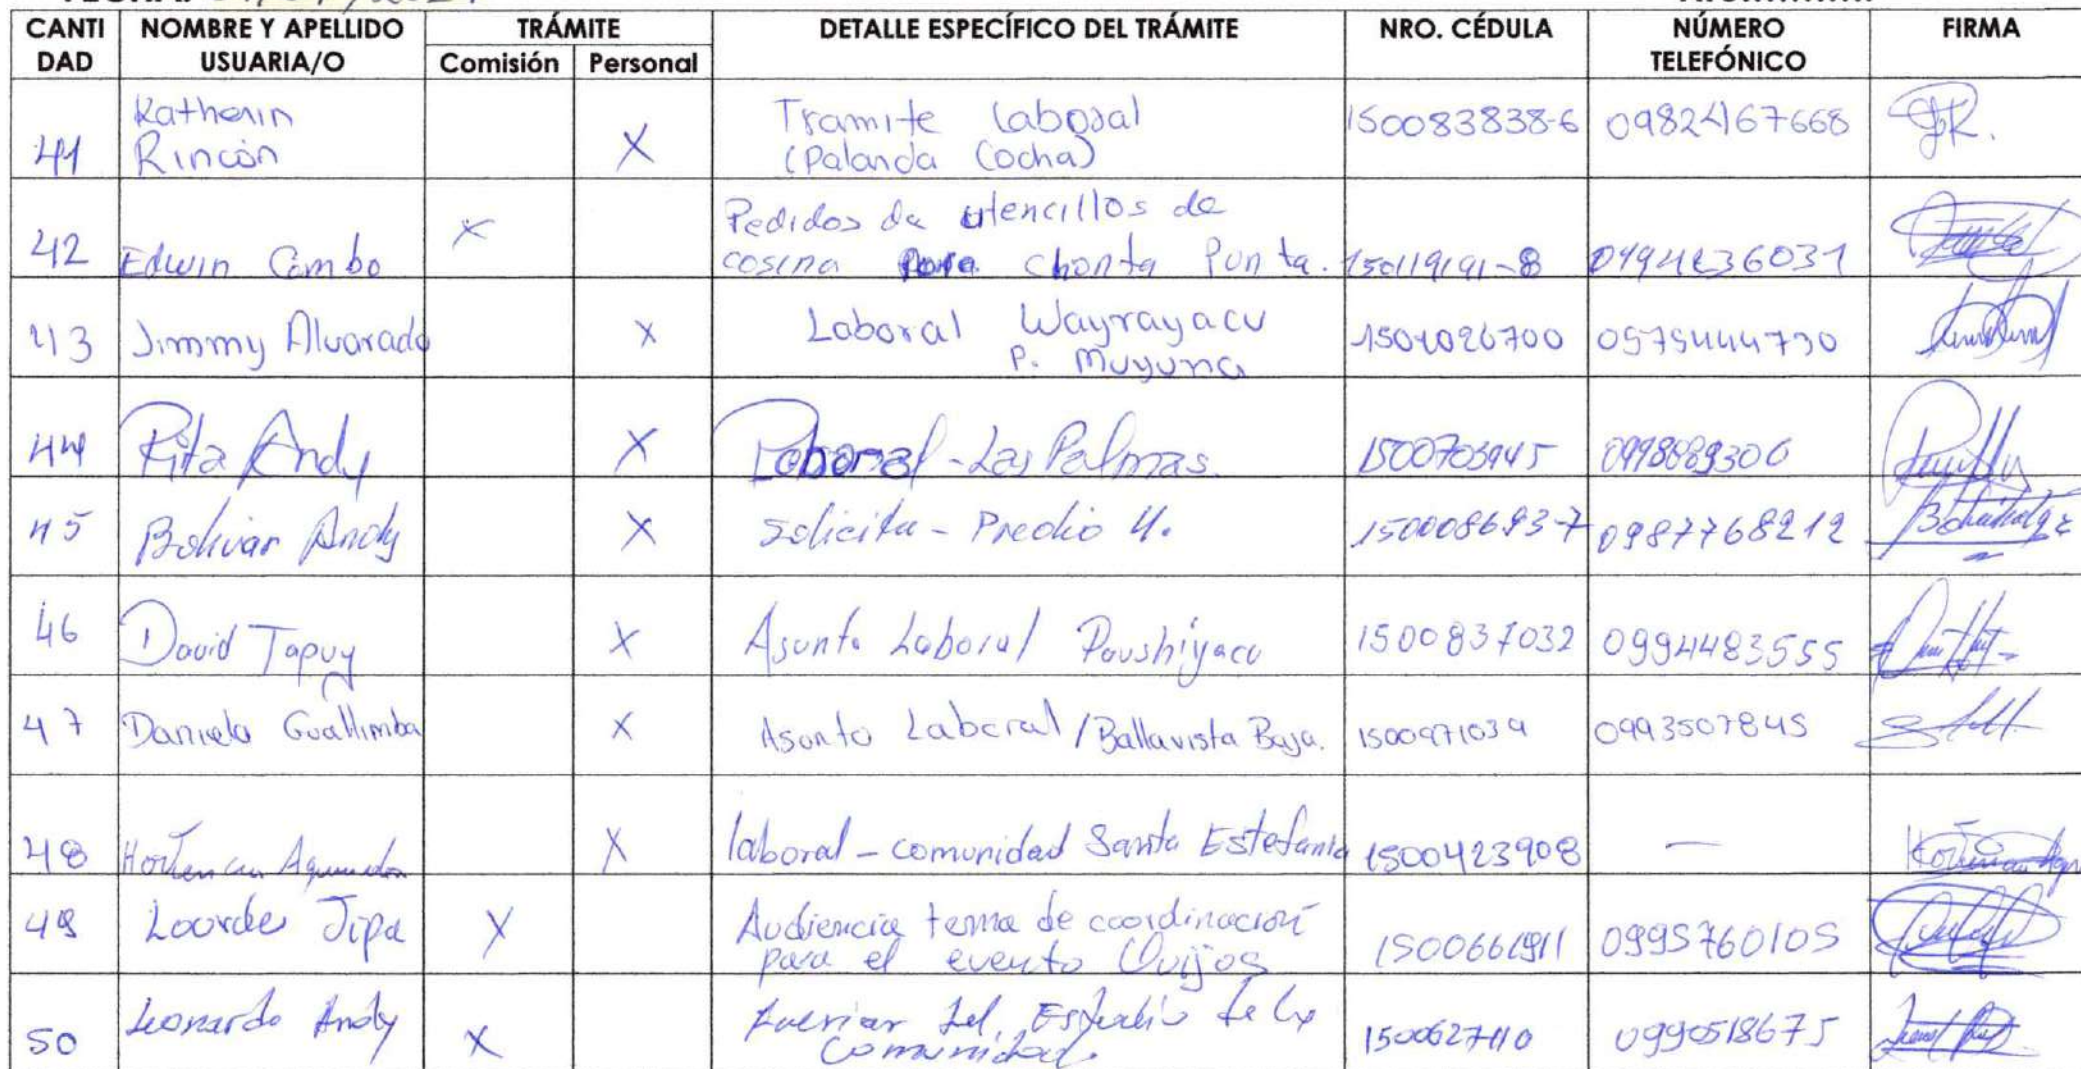 CANTI DAD NOMBRE Y APELLIDO USUARIA/O TRÁMITE Comisión Personal DETALLE ESPECÍFICO DEL TRÁMITE NRO. CÉDULA NÚMERO TELEFÓNICO FIRMA
41 Katherin Rincón X Tramite laboral (Palanda Cocha) 150083838-6 0982467668
42 Edwin Combo X Pedidos de utencillos de cosina para chonta Punta. 150119191-8
43 Jimmy Alvarado X Laboral Wayrayacu P. Muyuna
44 Rita Andy X Laboral - Las Palmas. 1500703945
45 Bolivar Andy X Solicita - Predio U. 150008693-7 0987768212
46 David Tapuy X Asunto Laboral Paushiyacu 1500837032 0994483555
47 Daniela Guallimba X Asunto Laboral / Ballavista Baja. 0993507845
48 X laboral - comunidad Santa Estefania 1500423908 —
49 Lourdes Jipa X Audiencia tema de coordinación para el evento Quijos 0995760105
50 Leonardo Andy X Comunidad 0990518675